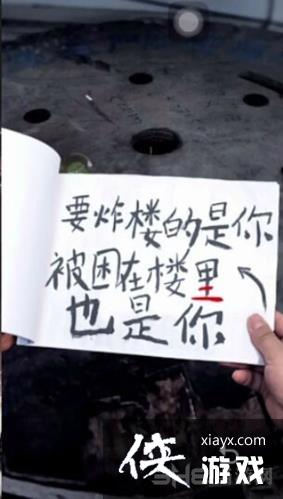 要炸楼的是你
被困在楼里
也是你
xiayx.com
侠游戏